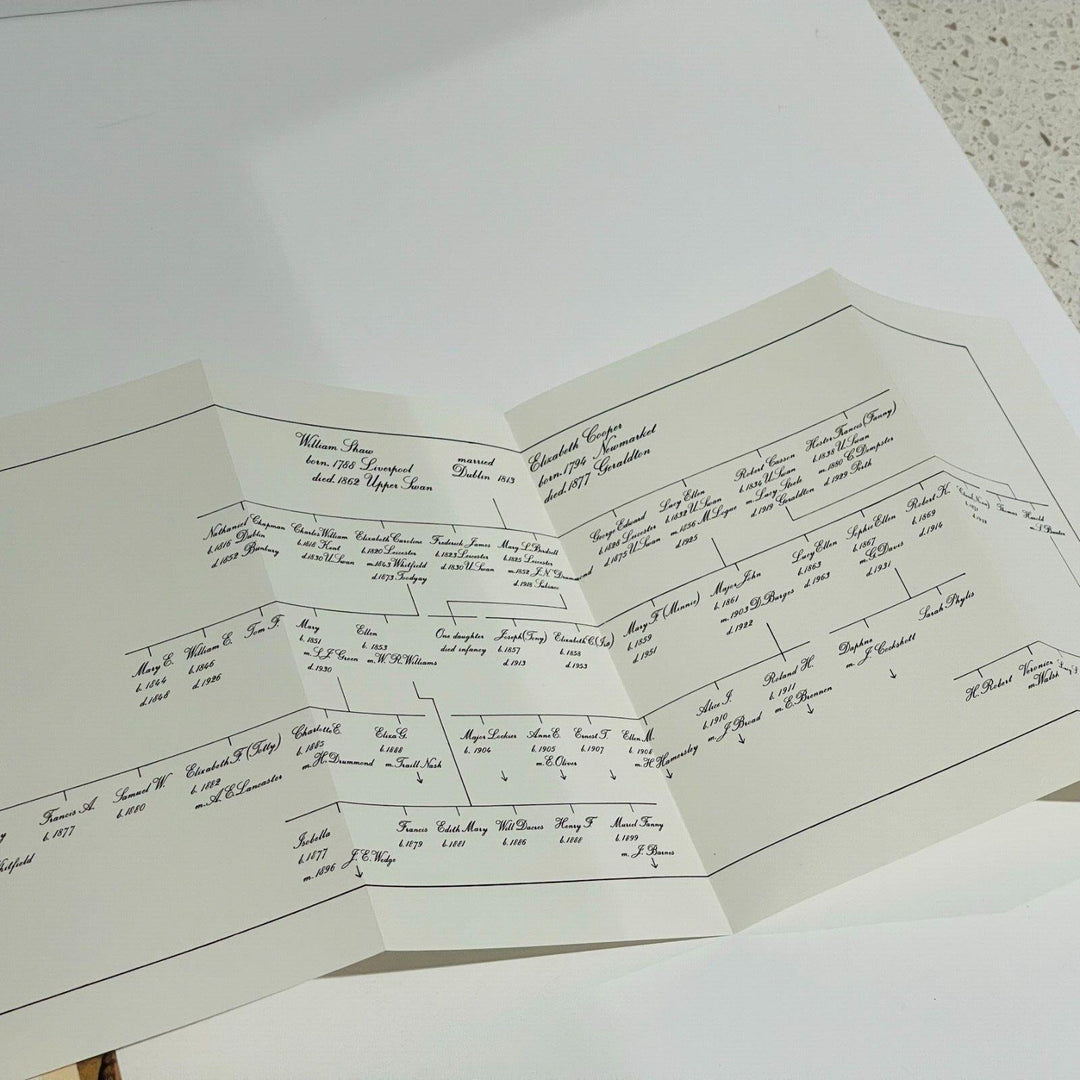 William Shaw
born. 1788 Liverpool
died. 1862 Upper Swan
married
Dublin 1813
Elizabeth Cooper
born. 1794 Newmarket
died. 1877 Geraldton
Nathaniel Chapman
b. 1816 Dublin
d. 1852 Bunbury
Charles William
b. 1818 Kent
d. 1830 U. Swan
Elizabeth Caroline
b. 1820 Leicester
m. 1843 Whitfield
d. 1873 Toodyay
Frederick James
b. 1823 Leicester
d. 1830 U. Swan
Mary L.
b. 1825 Leicester
m. 1852 J.N. Drummond
d. 1918
George Edward
b. 1828 Leicester
d. 1875 U. Swan
Lucy Ellen
b. 1832 U. Swan
m. 1856 M. Logue
d. 1925
Robert Casson
b. 1834 U. Swan
m. Lucy Steele
d. 1919 Geraldton
Hester Francis (Fanny)
b. 1838 U. Swan
m. 1880 C. Dempster
d. 1929 Perth
Mary E.
b. 1844
d. 1848
William E.
b. 1846
d. 1926
Tom F.
Mary
b. 1851
m. L.J. Green
d. 1930
Ellen
b. 1853
m. W.R. Williams
One daughter
died infancy
Joseph (Tony)
b. 1857
d. 1913
Elizabeth C.
b. 1858
d. 1953
Mary F. (Minnie)
b. 1859
d. 1951
Major John
b. 1861
m. 1903 D. Burges
d. 1922
Lucy Ellen
b. 1863
d. 1963
Sophie Ellen
b. 1867
m. G. Davis
d. 1931
Robert H.
b. 1869
d. 1914
Thomas
Harold
Francis A.
b. 1877
Samuel W.
b. 1880
Elizabeth F. (Totty)
b. 1882
m. A.E. Lancaster
Charlotte E.
b. 1885
m. H. Drummond
Eliza G.
b. 1888
m. Traill Nash
Major Lockier
b. 1904
Anne E.
b. 1905
m. E. Oliver
Ernest T.
b. 1907
Ellen M.
b. 1908
m. H. Hamersley
Alice J.
b. 1910
m. J. Broad
Roland H.
b. 1911
m. E. Brennen
Daphne
m. J. Cockshott
Sarah Phylis
H. Robert
Veronica
m. Walsh
Isobella
b. 1877
m. 1896 J.E. Wedge
Francis
b. 1879
Edith Mary
b. 1881
Will Dacres
b. 1886
Henry F.
b. 1888
Muriel Fanny
b. 1899
m. J. Barnes